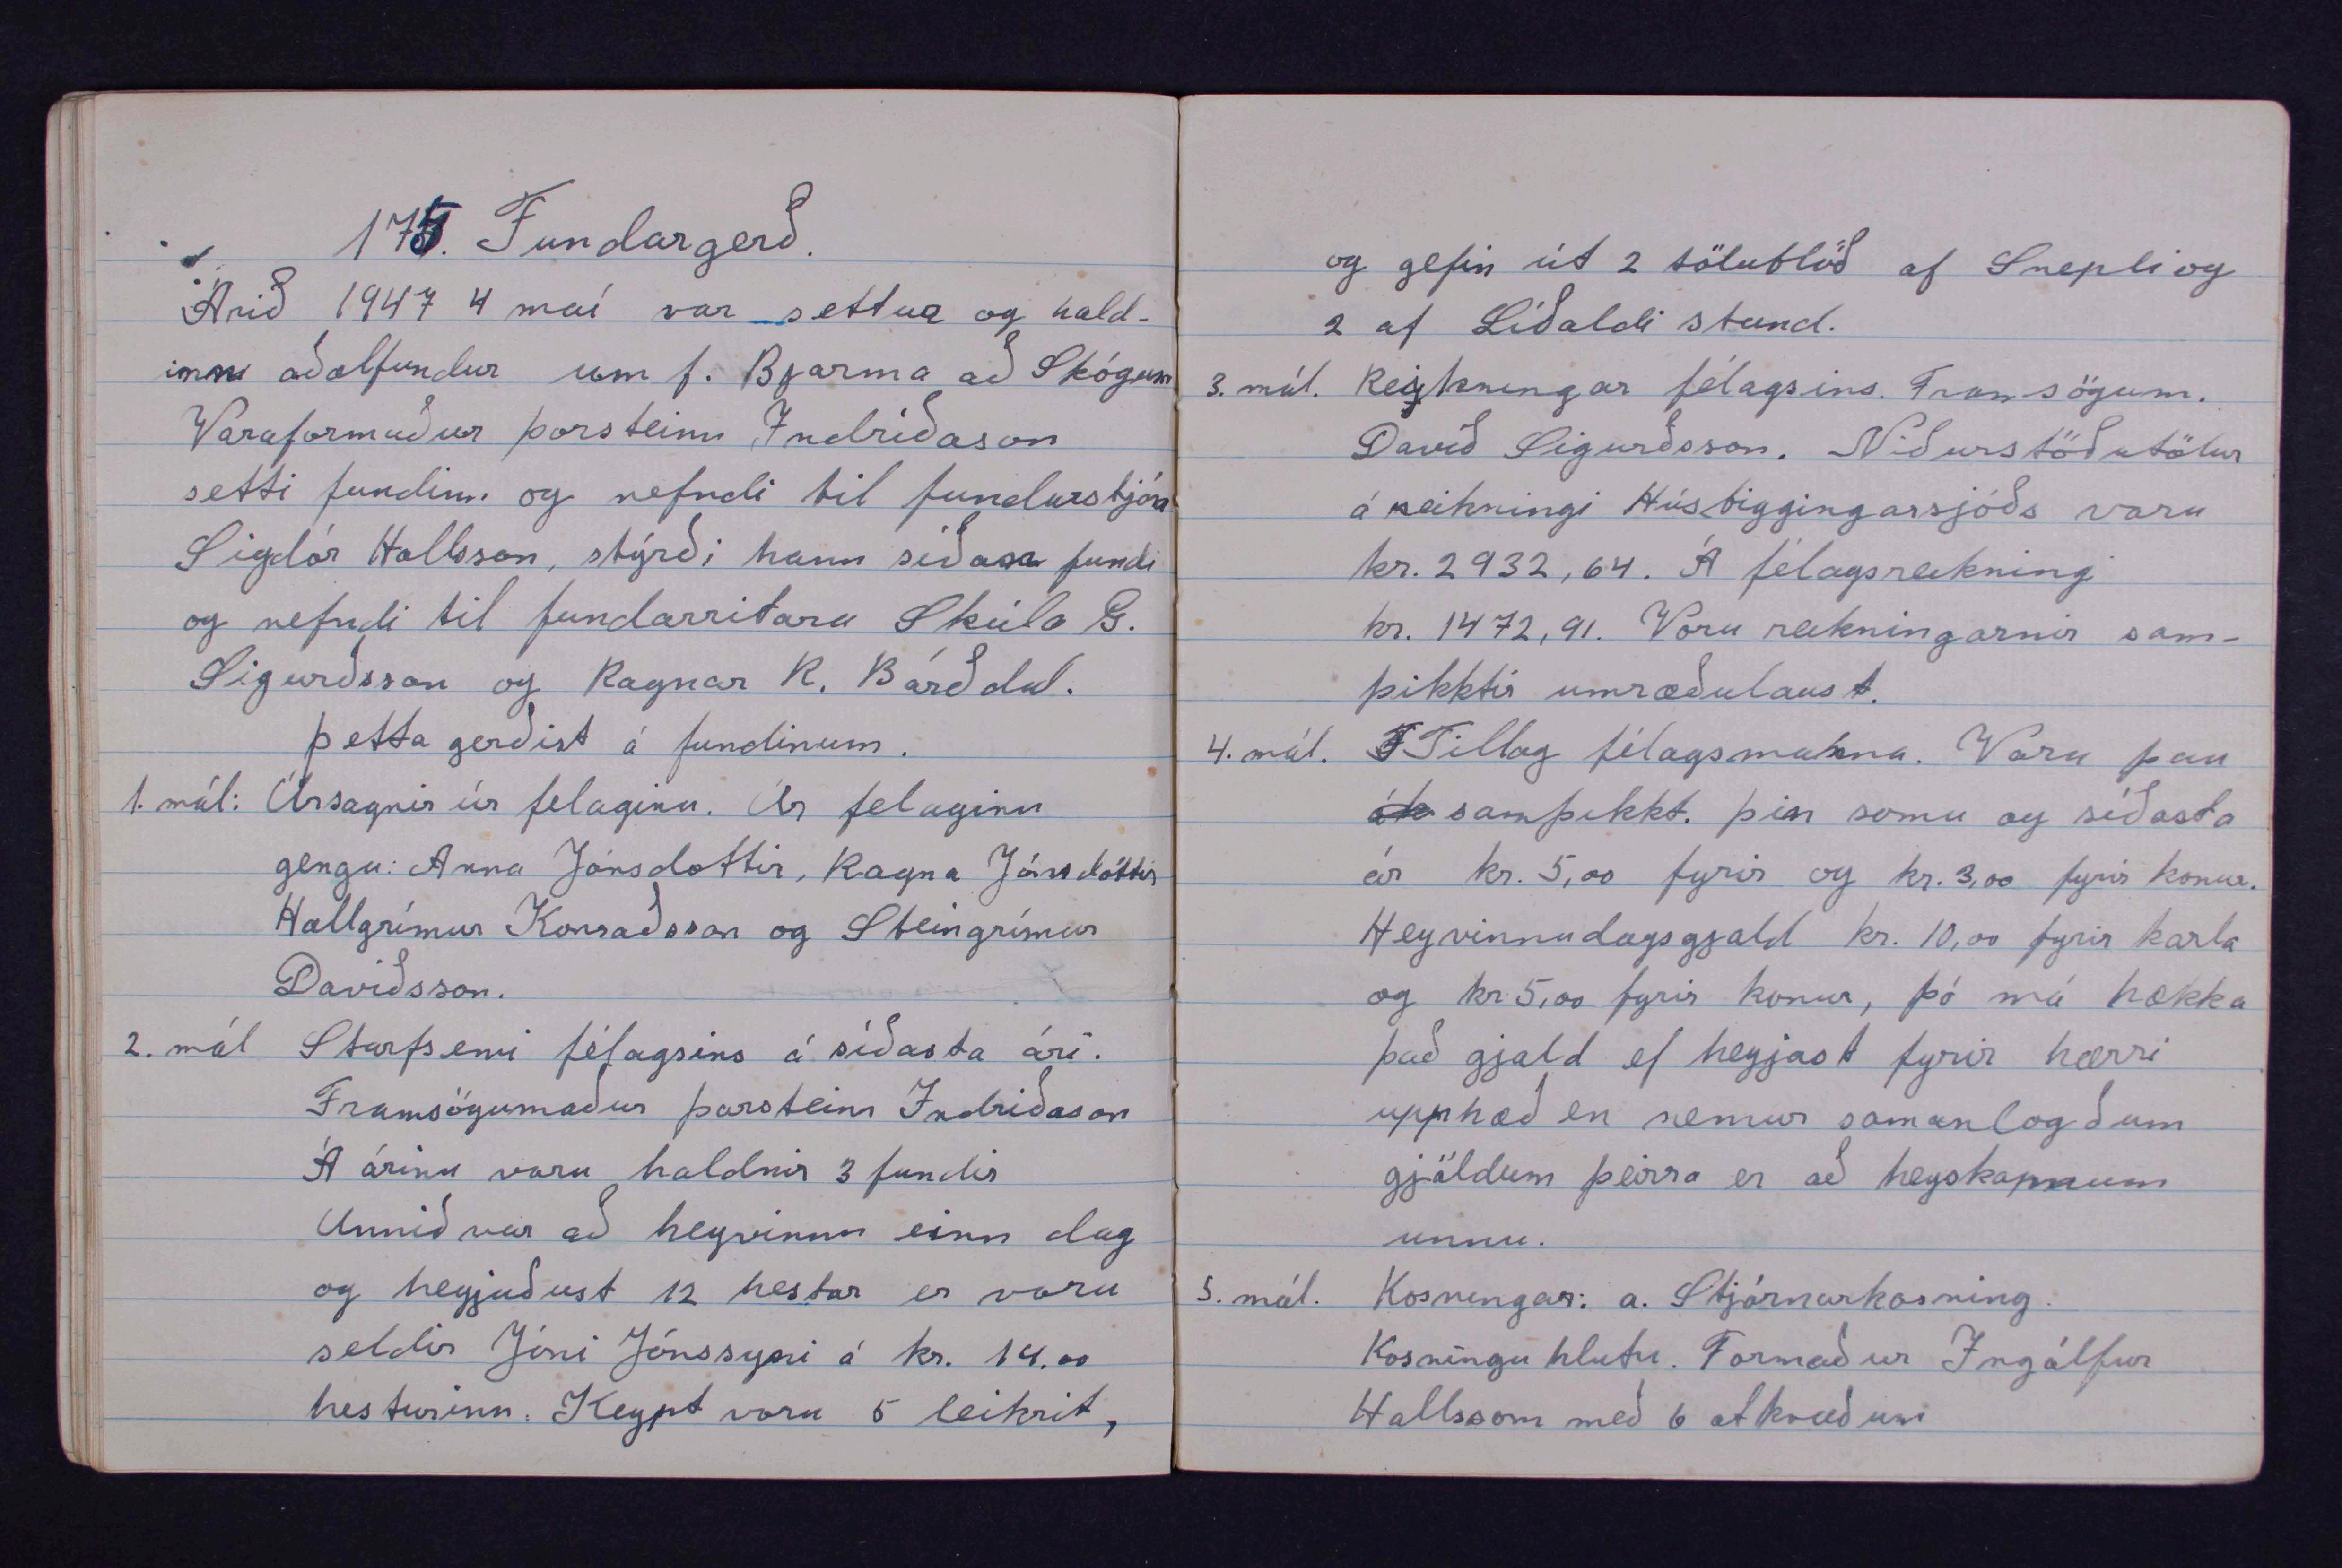 175. Fundargerð.
Árið 1947 4 maí var settur og hald-
inn aðalfundur um f. Bjarma að Skógum
Varaformaður Þorsteinn Indriðason
setti fundinn og nefndi til fundarstjóra
Sigdór Hallsson, stýrði hann síðan fundi
og nefndi til fundarritara Skúla G.
Sigurðsson og Ragnar R. Bárðdal.
Þetta gerðist á fundinum.
1. mál: Úrsagnir úr felaginu. Úr felaginu
gengu: Anna Jónsdottir, Ragna Jónsdóttir
Hallgrímur Konraðsson og Steingrímur
Davíðsson.
2. mál Starfsemi félagsins á síðasta ári.
Framsögumaður Þorsteinn Indriðason
Á árinu voru haldnir 3 fundir
Unnið var að heyvinnu einn dag
og heyjuðust 12 hestar er voru
seldir Jóni Jónssyni á kr. 14.00
hesturinn. Keypt voru 5 leikrit,
og gefin út 2 tölublöð af Snepli og
2 af Liðaldi stund.
3. mál. Reikningar félagsins. Framsögum.
Davíð Sigurðsson. Niðurstöðutölur
á reikningi Húsbiggingarsjóðs voru
kr. 2932,64. Á félagsreikning
kr. 1472,91. Voru reikningarnir sam-
þikktir umræðulaust.
4. mál. Tillag félagsmanna. Voru þau
samþikkt. þin somu og síðasta
ár kr. 5,00 fyrir og kr. 3,00 fyrir konur.
Heyvinnudagsgjald kr. 10,00 fyrir karla
og kr 5,00 fyrir konur, þó má hækka
það gjald ef heyjast fyrir hærri
upphæð en nemur samanlogðum
gjöldum þeirra er að heyskapnum
unnu.
5. mál. Kosningar: a. Stjórnarkosning.
Kosningu hlutu. Formaður Ingólfur
Hallsson með 6 atkvæðum